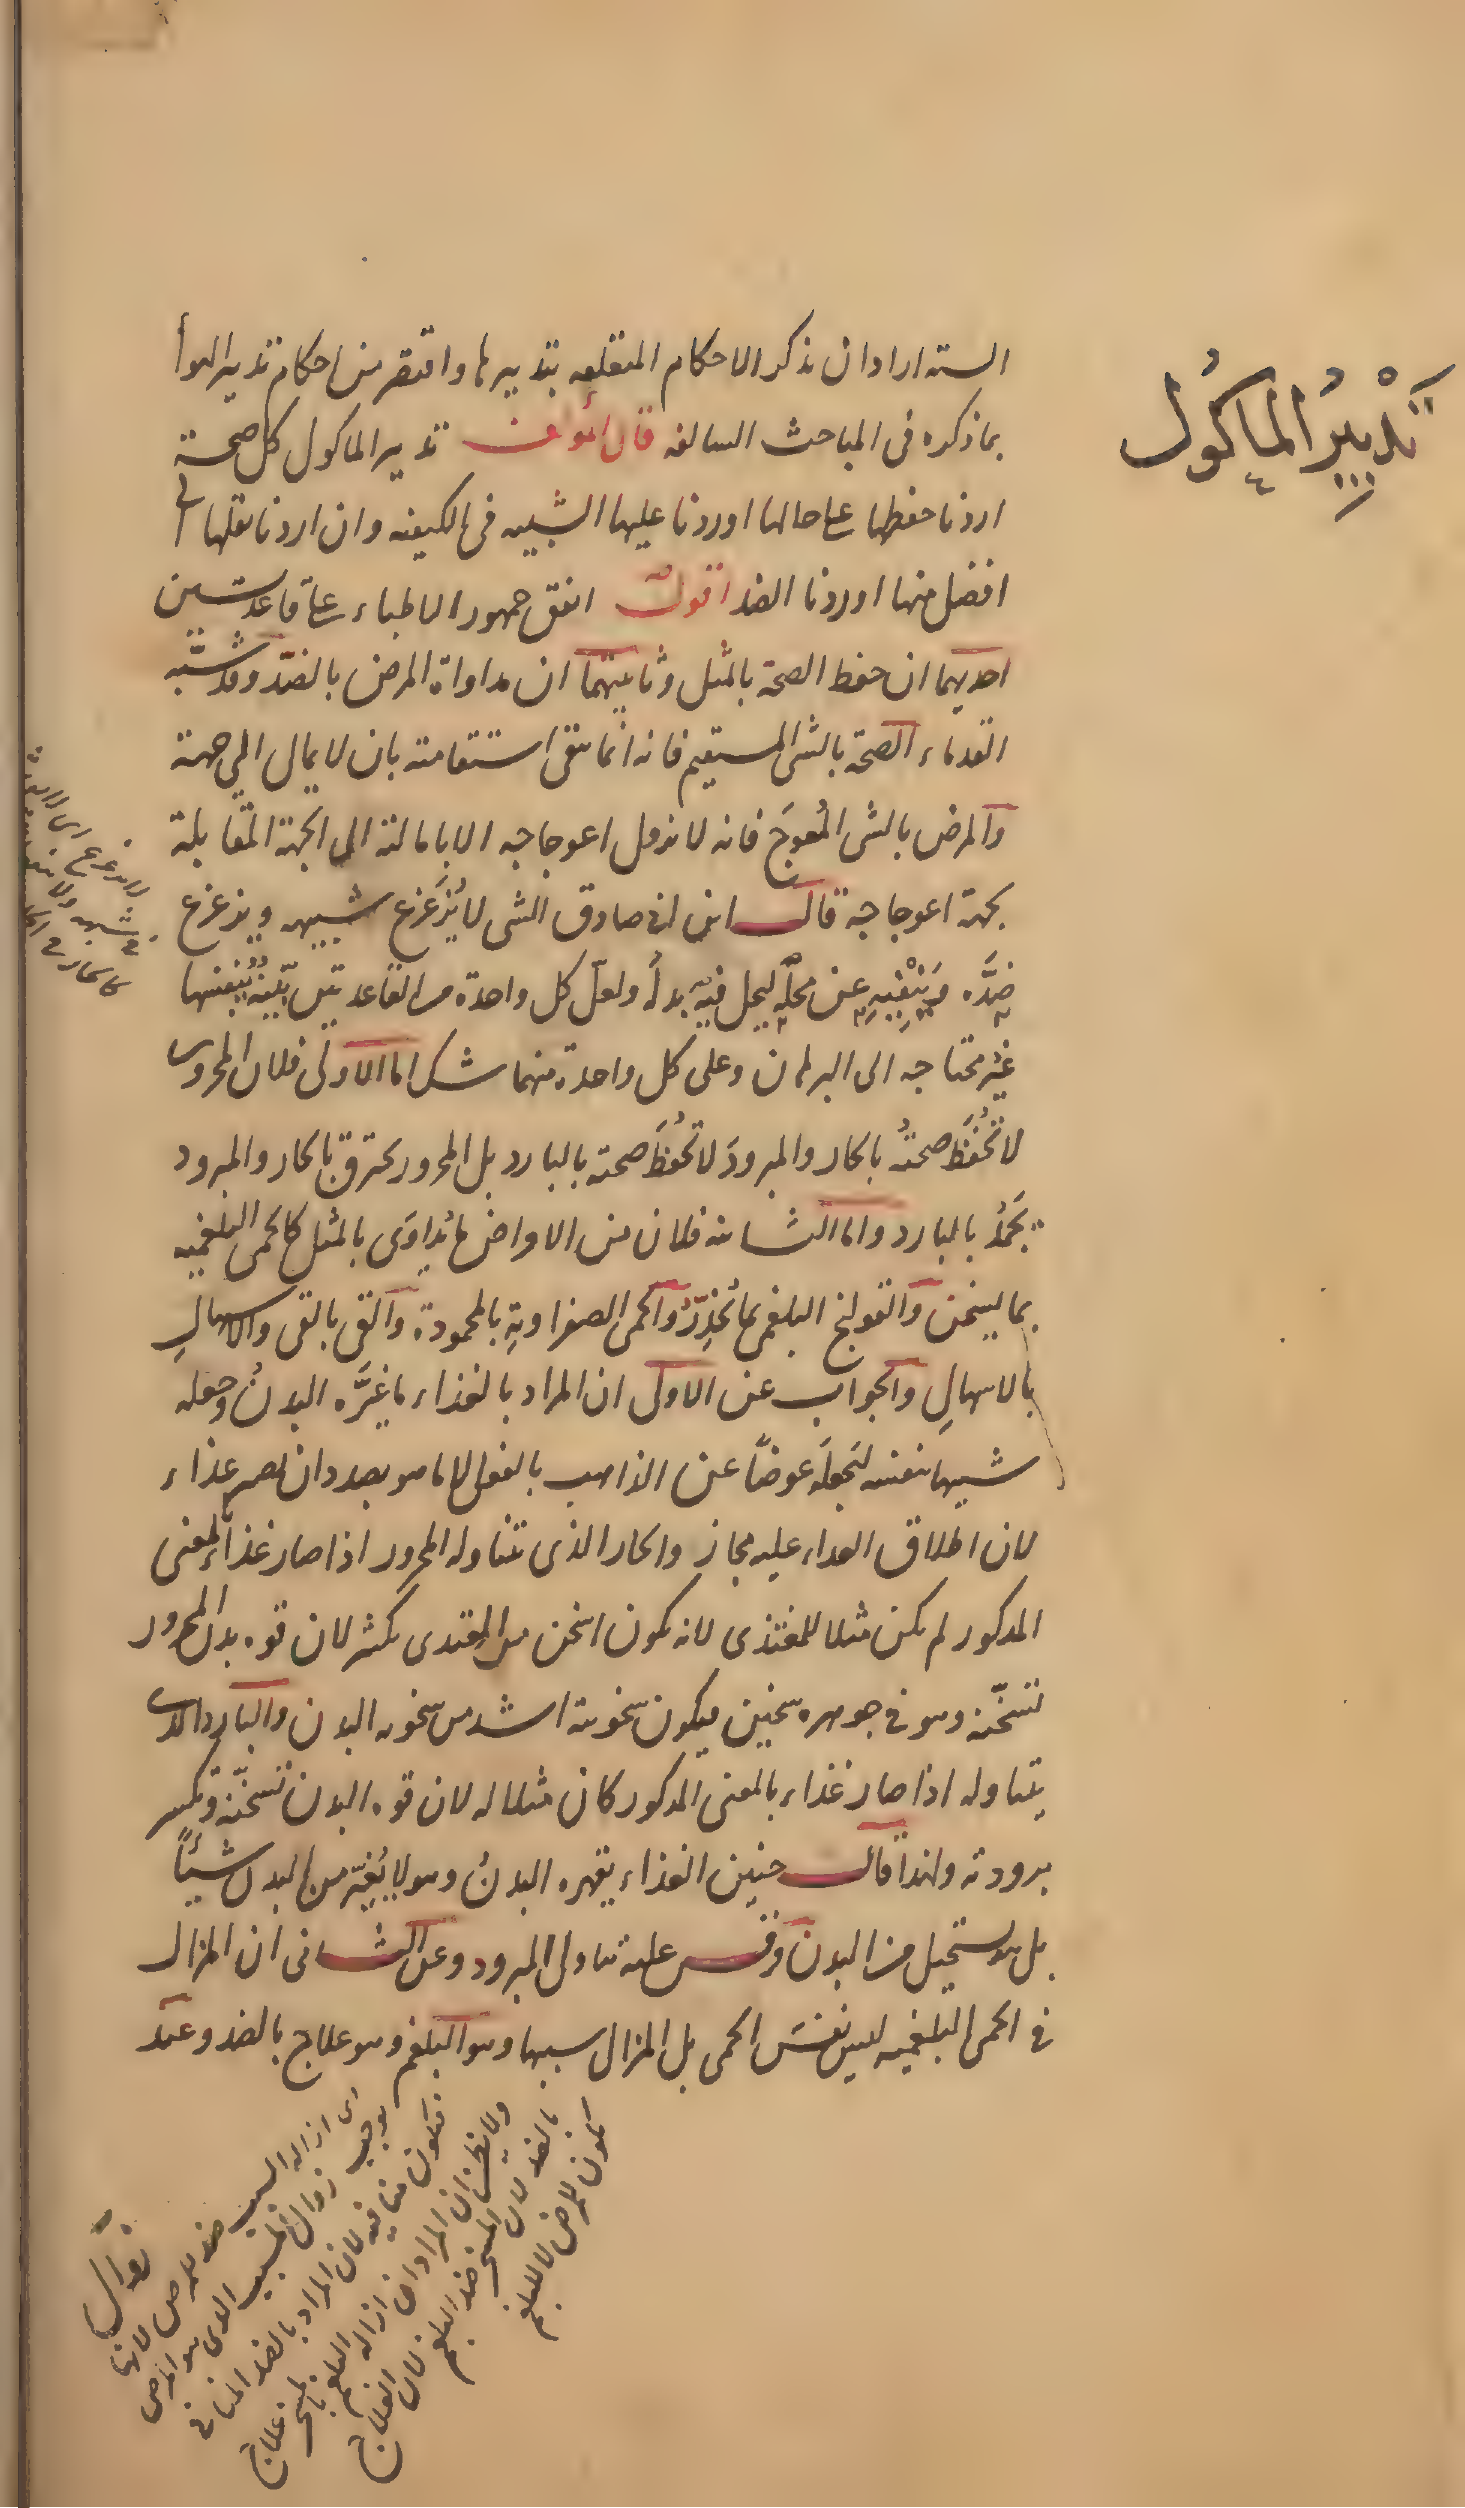 تَدْبِيرُ الماكُول
السته اراد ان يذكر الاحكام المتعلقه بتدبيرها واقتصر من احكام تدبير الهوأ
بما ذكره فى المباحث السالفه قال المؤلف تدبير الماكول كل صحة
اردنا حفظها على حالها اوردنا عليها الشبيه فى الكيفيه وان اردنا نقلها الى
افضل منها اوردنا الضد اقول اتفق جمهور الاطباء على قاعدتين
احديهما ان حفظ الصحة بالمثل وثانيتهما ان مداواة المرض بالضدّ وقد شبّه
القدماء الصحة بالشى المستقيم فانه انما تبقى استقامته بان لا يمال الى جهة
والمرض بالشى المُعوجَ فانه لا يزول اعوجاجه الا بامالته الى الجهة المقابلة
بجهة اعوجاجه قال ابن ابى صادق الشى لا يُزَعزع شبيهه ويزعزع
ضِدَّه ويَنْفِيهِ عن محلّه ليحل فيه بدلُه ولعلّ كل واحدة من القاعدتين بيّنةٌ بنفسها
غير محتاجه الى البرهان وعلى كل واحدة منهما شك اما الاولى فلان المحرور
لا تُحُفَظ صحتُه بالحار والمبرودَ لا تُحفَظَ صحته بالبارد بل المحرور يحترق بالحار والمبرود
يَجمُدُ بالبارد واما الثانيه فلان من الامراض ما يُداوَى بالمثل كالحمى البلغميه
بما يسخن والقولنج البلغمى بما يُخَدِّرُ والحمى الصفراويةِ بالمحمودة والقى بالقى والاسهالِ
بالاسهالِ والجواب عن الاولى ان المراد بالغذاء ما غيَّره البدنُ وجعله
شبيها بنفسه ليَجعلَه عوضًا عن الذاهب بالفعل لا ما هو بصدد ان يصير غذاء
لان اطلاق الغداء عليه مجاز والحار الذى تناوله المحرور اذا صار غذاء بالمعنى
المذكور لم يكن مثلا للمغتذى لانه يكون اسخن من المغتدى بكثير لان قوه بدن المحرور
تسخّنه وهو فى جوهره سخين فيكون سخونته اشد من سخونه البدن والبارد الذى
يتناوله اذا صار غذاء بالمعنى المذكور كان مثلا له لان قوه البدن تسخّنه وتكسر
برودته ولهذا قال حنين الغذاء يقهره البدنُ وهو لا يُغيّر من البدن شيئاً
بل هو يستحيل من البدن وقس عليه تناول المبرود وعن الثانى ان المزال
فى الحمى البلغميه ليس نفسَ الحمى بل المزال سببها وهو البلغم وهو علاج بالضد وعند
اى ازاله السبب ضد للمرض لانها
يوجب زوال المسبب الذى هو المرض
فتكون منافيه لان المراد بالضد المنافى
ولا يظن ان المراد ان ازاله البلغم بالمسخن علاج
بالضد لان المسخن ضد البلغم لان العلاج
يكون للمرض لا للبلغم